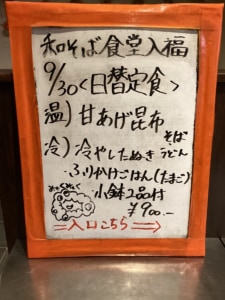 和そば食堂入福
9/30<日替定食>
温)甘あげ昆布
そば
冷)冷やしたぬきうどん
・ふりかけごはん(たまご)
・小鉢2品付
¥900.-
⇒入口こちら⇒